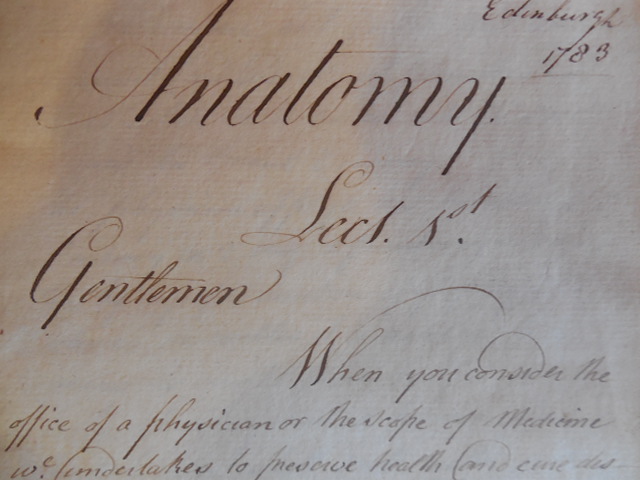 Edinburgh
1783
Anatomy.
Lect. 1st.
Gentlemen
When you consider the
office of a physician or the scope of Medicine
wc. undertakes to preserve health and cure dis-